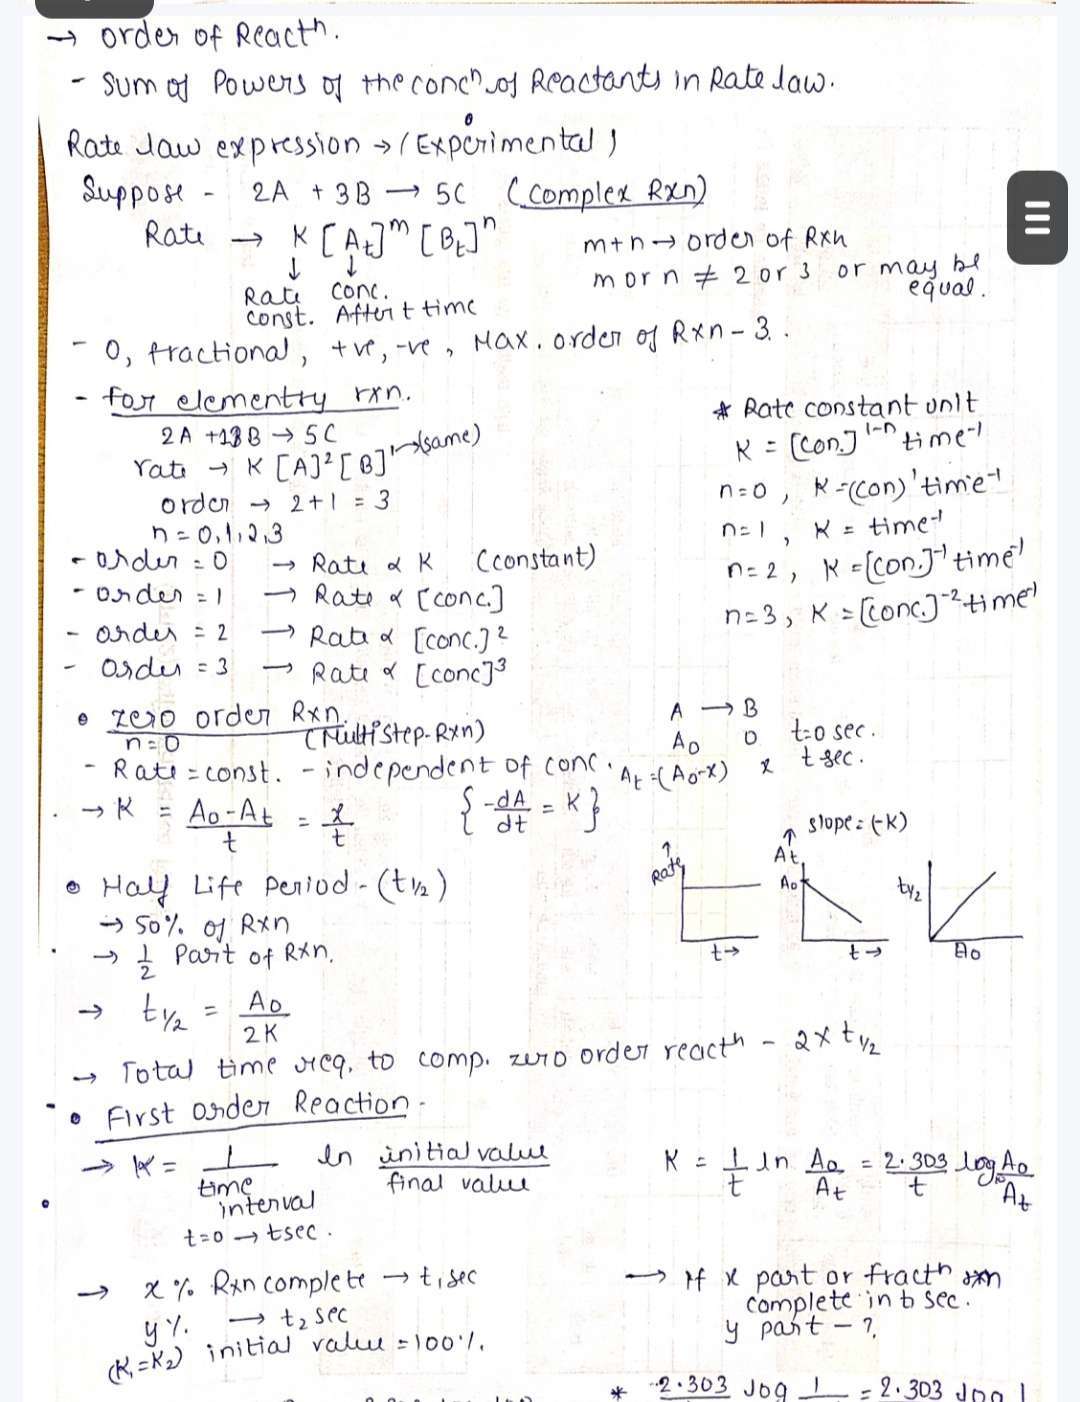 → order of Reactn.
- Sum of Powers of the concn. of Reactants in Rate law.
Rate law expression → (Experimental)
Suppose - 2A + 3B → 5C (Complex Rxn)
Rate → K [At]^m [Bt]^n
m+n → order of Rxn
m or n ≠ 2 or 3 or may be equal.
↓ ↓
Rate const. Conc. After t time
- 0, fractional, +ve, -ve, Max. order of Rxn - 3.
- for elementry rxn.
2A + 1B → 5C
rate → K [A]² [B]¹ → (same)
order → 2+1 = 3
n = 0,1,2,3
* Rate constant unit
K = [con.]^1-n time^-1
n=0, K = (con)^1 time^-1
n=1, K = time^-1
n=2, K = [con.]^-1 time^-1
n=3, K = [conc.]^-2 time^-1
- order = 0 → Rate α K (constant)
- order = 1 → Rate α [conc.]
- order = 2 → Rate α [conc.]²
- order = 3 → Rate α [conc]³
• zero order Rxn.
n=0 (Multistep-Rxn)
A → B
A₀ 0 t=0 sec.
At = (A₀-x) x t sec.
- Rate = const. - independent of conc.
→ K = A₀-At / t = x / t
{ -dA/dt = K }
slope = (-K)
Rate t→
At A₀ t→
t½ A₀
• Half Life Period - (t½)
→ 50% of Rxn
→ 1/2 Part of Rxn.
→ t½ = A₀ / 2K
→ Total time req. to comp. zero order reactn - 2 x t½
• First order Reaction -
→ K = 1 / time interval ln initial value / final value
t=0 → t sec.
K = 1/t ln A₀/At = 2.303/t log₁₀ A₀/At
→ x % Rxn complete → t₁ sec
y %. → t₂ sec
(K₁=K₂) initial value = 100%.
→ If x part or fractn rxn
complete in t sec.
y part - ?
* 2.303 log 1 = 2.303 log 1